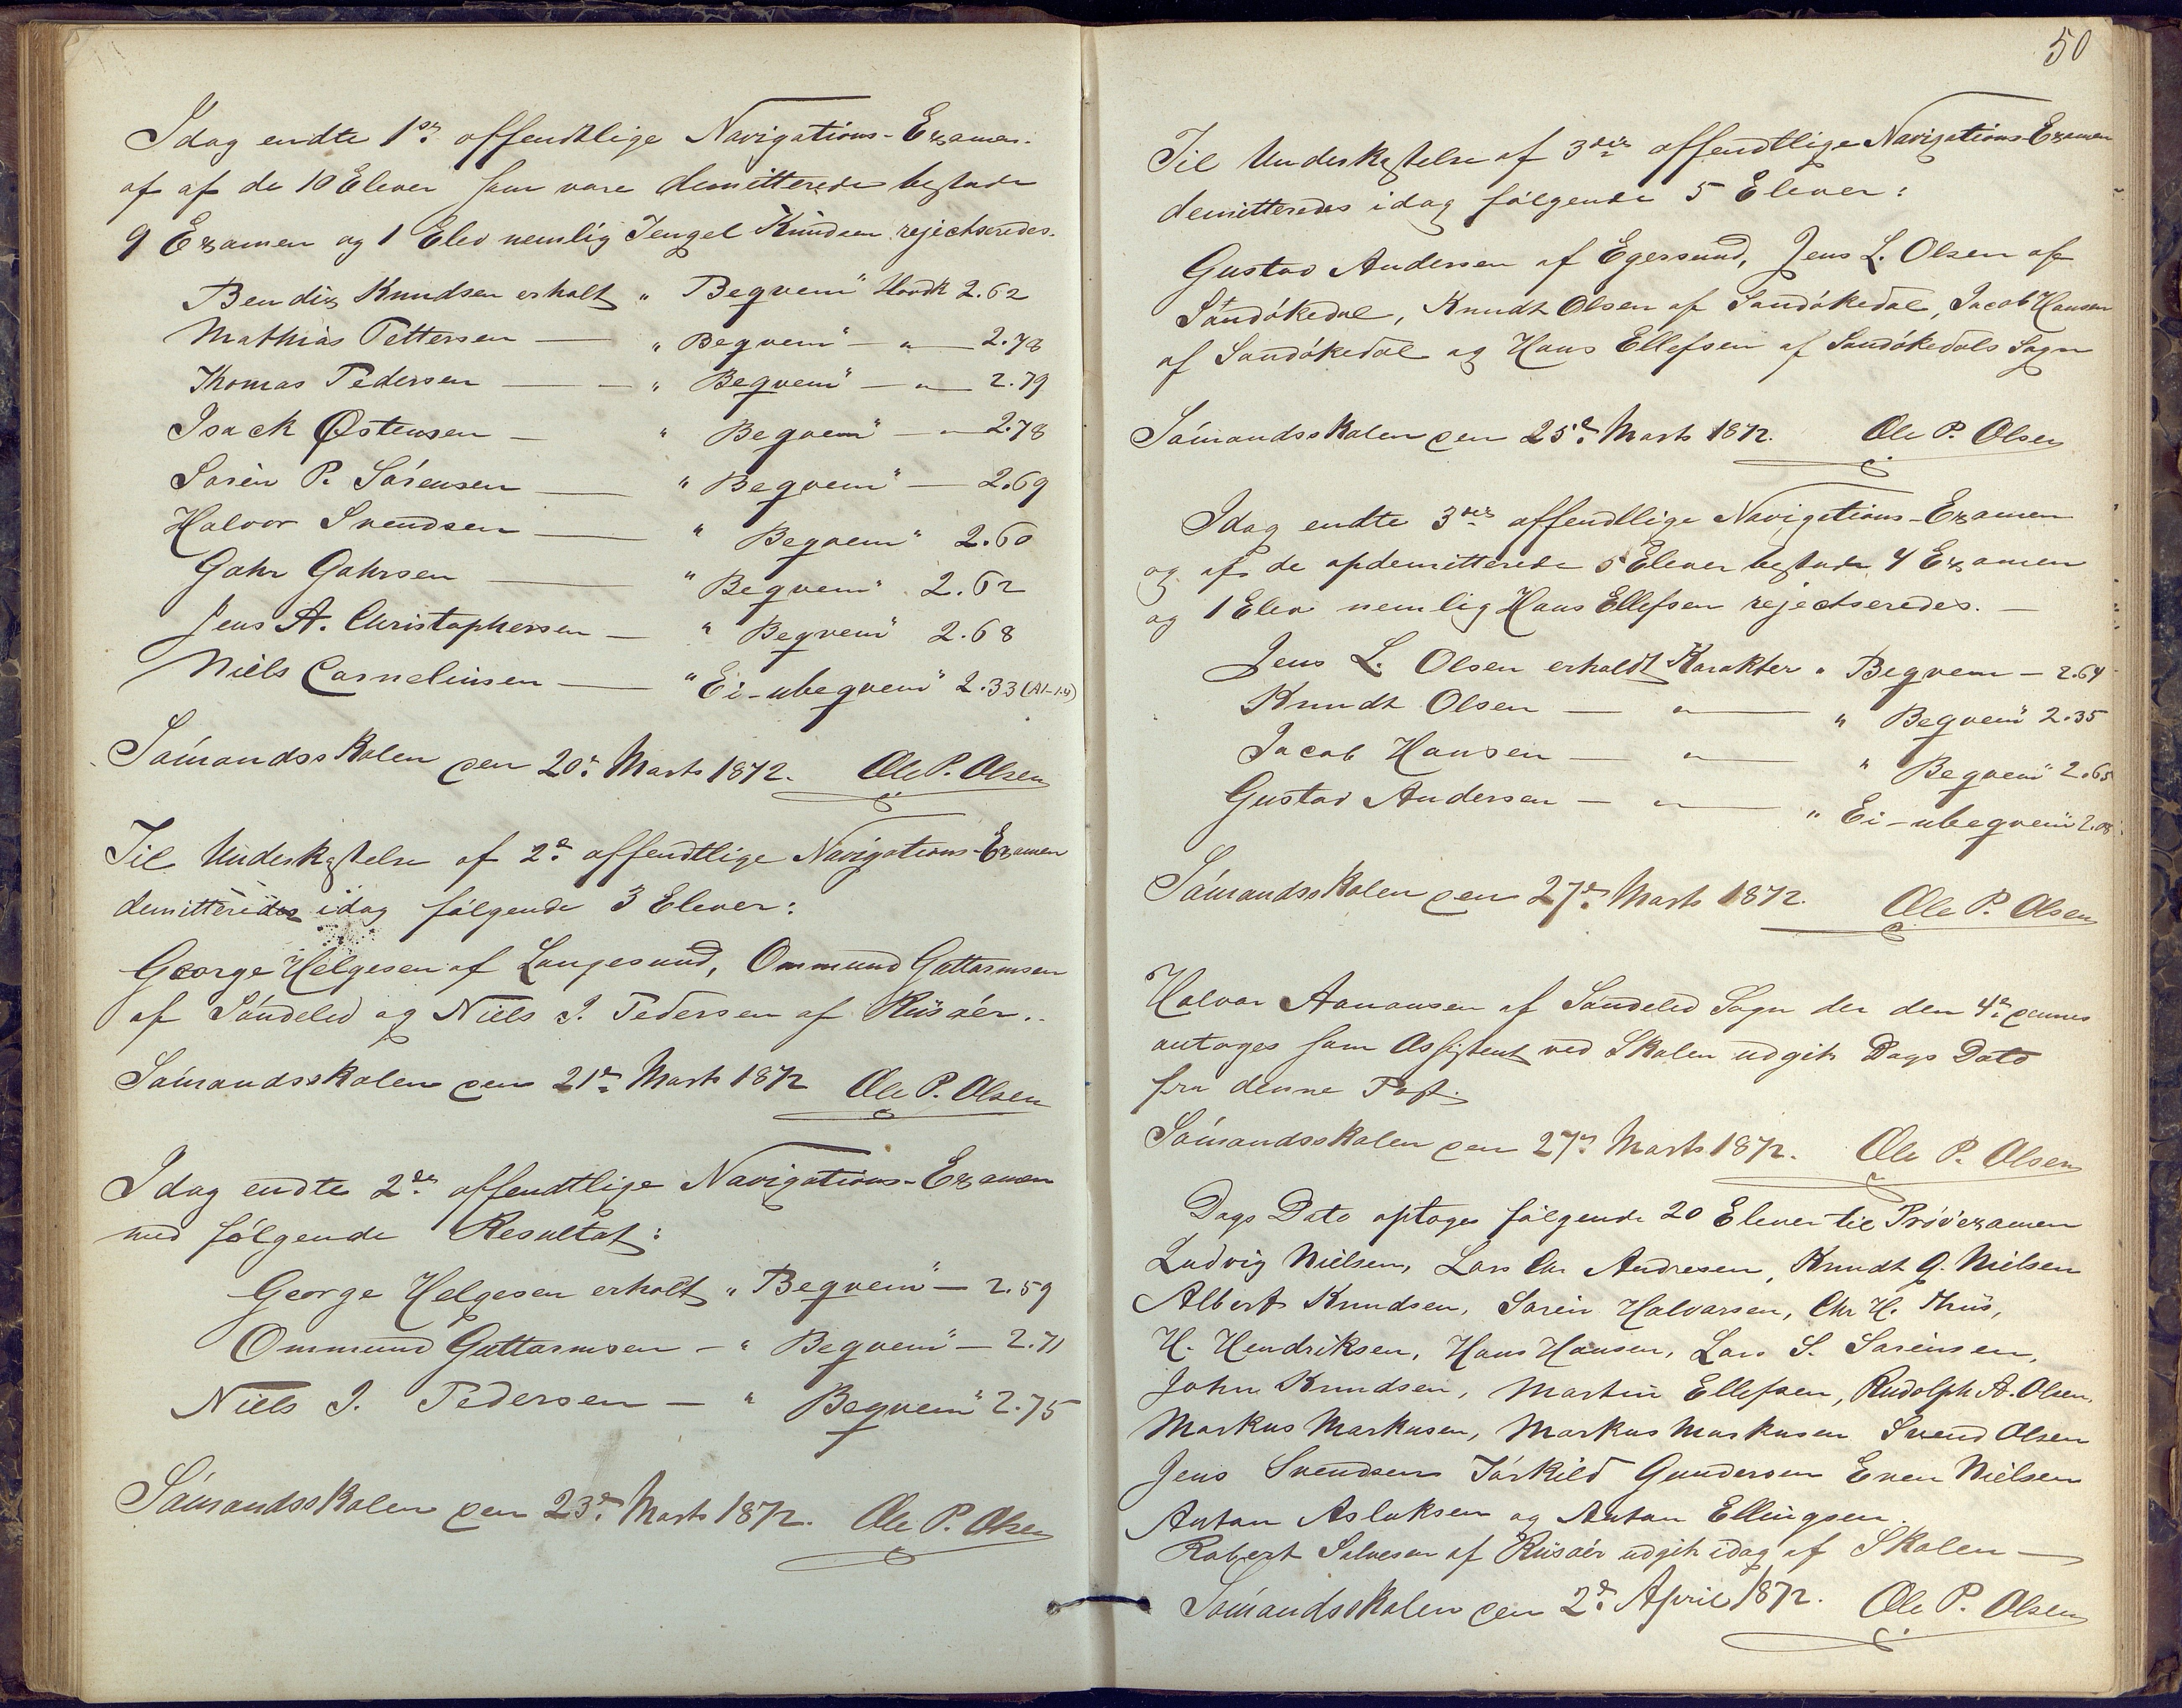 Idag endte 1ste offendtlige Navigations-Examen.
af af de 10 Elever som vare demitterede bestode
9 Examen og 1 Elev nemlig Tengel Knudsen rejectseredes.
Bendix Knudsen erholt „ Beqvem" Hovdk 2.62
Mathias Pettersen — „ Beqvem" — „ — 2.78
Thomas Pedersen — — „ Beqvem" — „ — 2.79
Isack Østensen — „ Beqvem" „ — 2.78
Sørén P. Sørensen — „ Beqvem" — 2.69
Halvor Svendsen — „ Beqvem" 2.60
Gahr Gahrsen — „ Beqvem" 2.62
Jens A. Christophersen — „ Beqvem" 2.68
Niels Corneliusen — „ Ei-ubeqvem" 2.33 (A1-1.4)
Sømandsskolen den 20de Marts 1872. Ole P. Olsen
Til Underkastelse af 2den offendtlige Navigations-Examen
demitteredes idag følgende 3 Elever:
George Helgesen af Langesund, Ommund Guttormsen
af Søndeled og Niels J. Pedersen af Riisøer.
Sømandsskolen den 21de Marts 1872 Ole P. Olsen
Idag endte 2den offendtlige Navigations-Examen
med følgende Resultat:
George Helgesen erholt „ Beqvem" — 2.59
Ommund Guttormsen — „ Beqvem" — 2.71
Niels J. Pedersen — „ Beqvem" 2.75
Sømandsskolen den 23de Marts 1872. Ole P. Olsen
50
Til Underkastelse af 3die offendtlige Navigations-Examen
demitteredes idag følgende 5 Elever:
Gustav Andersen af Egersund, Jens L. Olsen af
Sandøkedal, Knudt Olsen af Sandøkedal, Jacob Hansen
af Sandøkedal og Hans Ellefsen af Sandøkedals Sogn
Sømandsskolen den 25de Marts 1872. Ole P. Olsen
Idag endte 3die offendtlige Navigations-Examen
og af de opdemitterede 5 Elever bestode 4 Examen
og 1 Elev nemlig Hans Ellefsen rejectseredes. —
Jens L. Olsen erholdt Karakter „ Beqvem — 2.64
Knudt Olsen — „ — „ Beqvem" 2.35
Jacob Hansen — „ — „ Beqvem" 2.65
Gustav Andersen — „ — „ Ei-ubeqvem" 2.08
Sømandsskolen den 27de Marts 1872. Ole P. Olsen
Halvor Aanonsen af Søndeled Sogn der den 4de dennes
antoges som Assistent ved Skolen udgik Dags Dato
fra denne Post.
Sømandsskolen den 27de Marts 1872. Ole P. Olsen
Dags Dato optoges følgende 20 Elever til Prøvexamen
Ludvig Nielsen, Lars Chr Andresen, Knudt G. Nielsen
Albert Knudsen, Sørén Halvorsen, Chr H. Thiis,
H. Hendriksen, Hans Hansen, Lars S. Sørensen,
John Knudsen, Martin Ellefsen, Rudolph A. Olsen,
Markus Markusen, Markus Markusen Svend Olsen
Jens Svendsen Tørkild Gundersen Even Nielsen
Anton Aslaksen og Anton Ellingsen.
Robert Salvesen af Riisøer udgik idag af Skolen —
Sømandsskolen den 2de April 1872. Ole P. Olsen